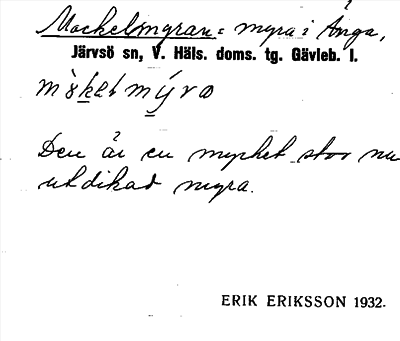 Mockelmyran = myra i Ånga,
Järvsö sn, V. Häls. doms. tg. Gävleb. l.
Den är en mycket stor nu
utdikad myra.
ERIK ERIKSSON 1932.